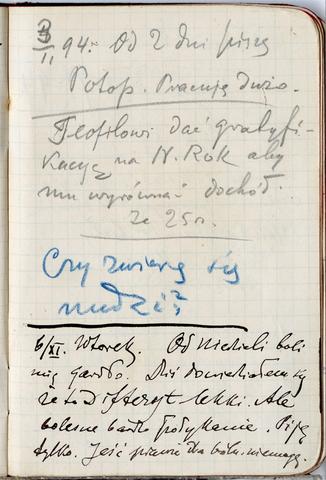 3/II. 94. Od 2 dni piszę
Potop. Pracuję dużo.
Teofilowi dać gratyfi-
kację na N. Rok aby
mu wyrównać dochód.
że 25 r.
Czy zwierzę się
nudzi?
6/XI. Wtorek. Od niedzieli boli
mię gardło. Dziś dowiedziałem się
że to dyfteryt lekki. Ale
bolesne bardzo połykanie. Piję
tylko. Jeść prawie dla bólu niemogę.